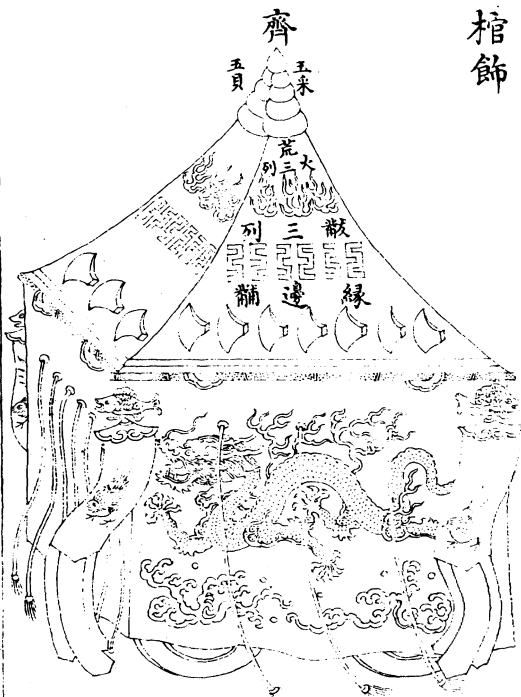 棺飾
齊
五采
五貝
荒
火三列
黻三列
縁邊黼